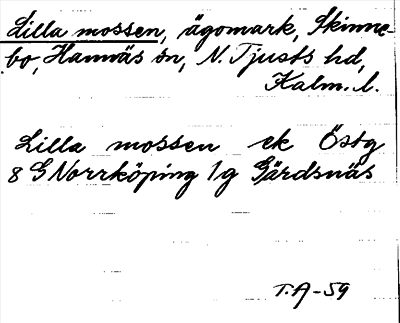 Lilla mossen, ägomark, Skinne-
bo, Hannäs sn, N. Tjusts hd,
Kalm. l.
Lilla mossen ek Östg
8 G Norrköping 1g Gärdsnäs
T.A-59